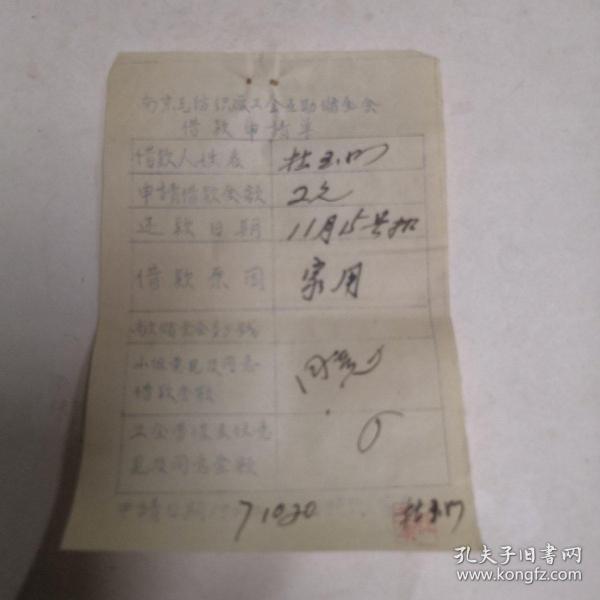 南京毛纺织厂工会互助储金会
借款申請单
借款人姓名 杜玉
申請借款金額 2元
还款日期 11月15号扣
借款原因 家用
储金会多少钱
小组意见及同意 同意
借款金額
工会劳保委员意
见及同意金额
申請日期 7 10 20 杜玉
孔夫子旧书网
www.kongfz.com